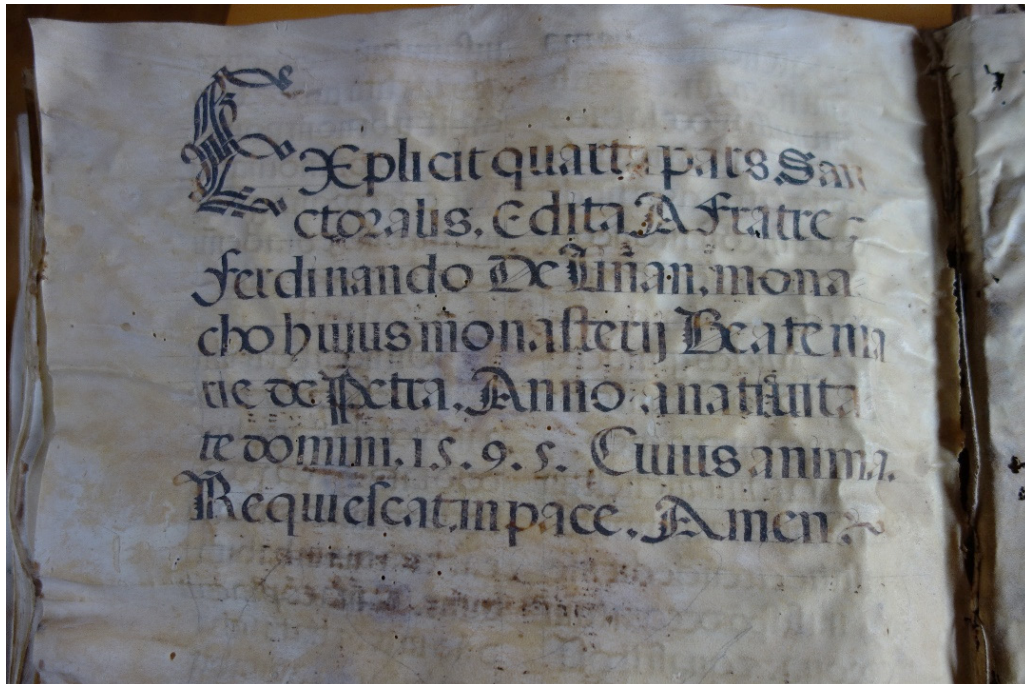 EXplicit quarta pars San
ctoralis. Edita A Fratre
Ferdinando De Liñan, mona
cho huius monasterij Beate ma
rie de Petra. Anno a nativita
te domini. 1.5.9.5. Cuius anima.
Requiescat in pace. Amen